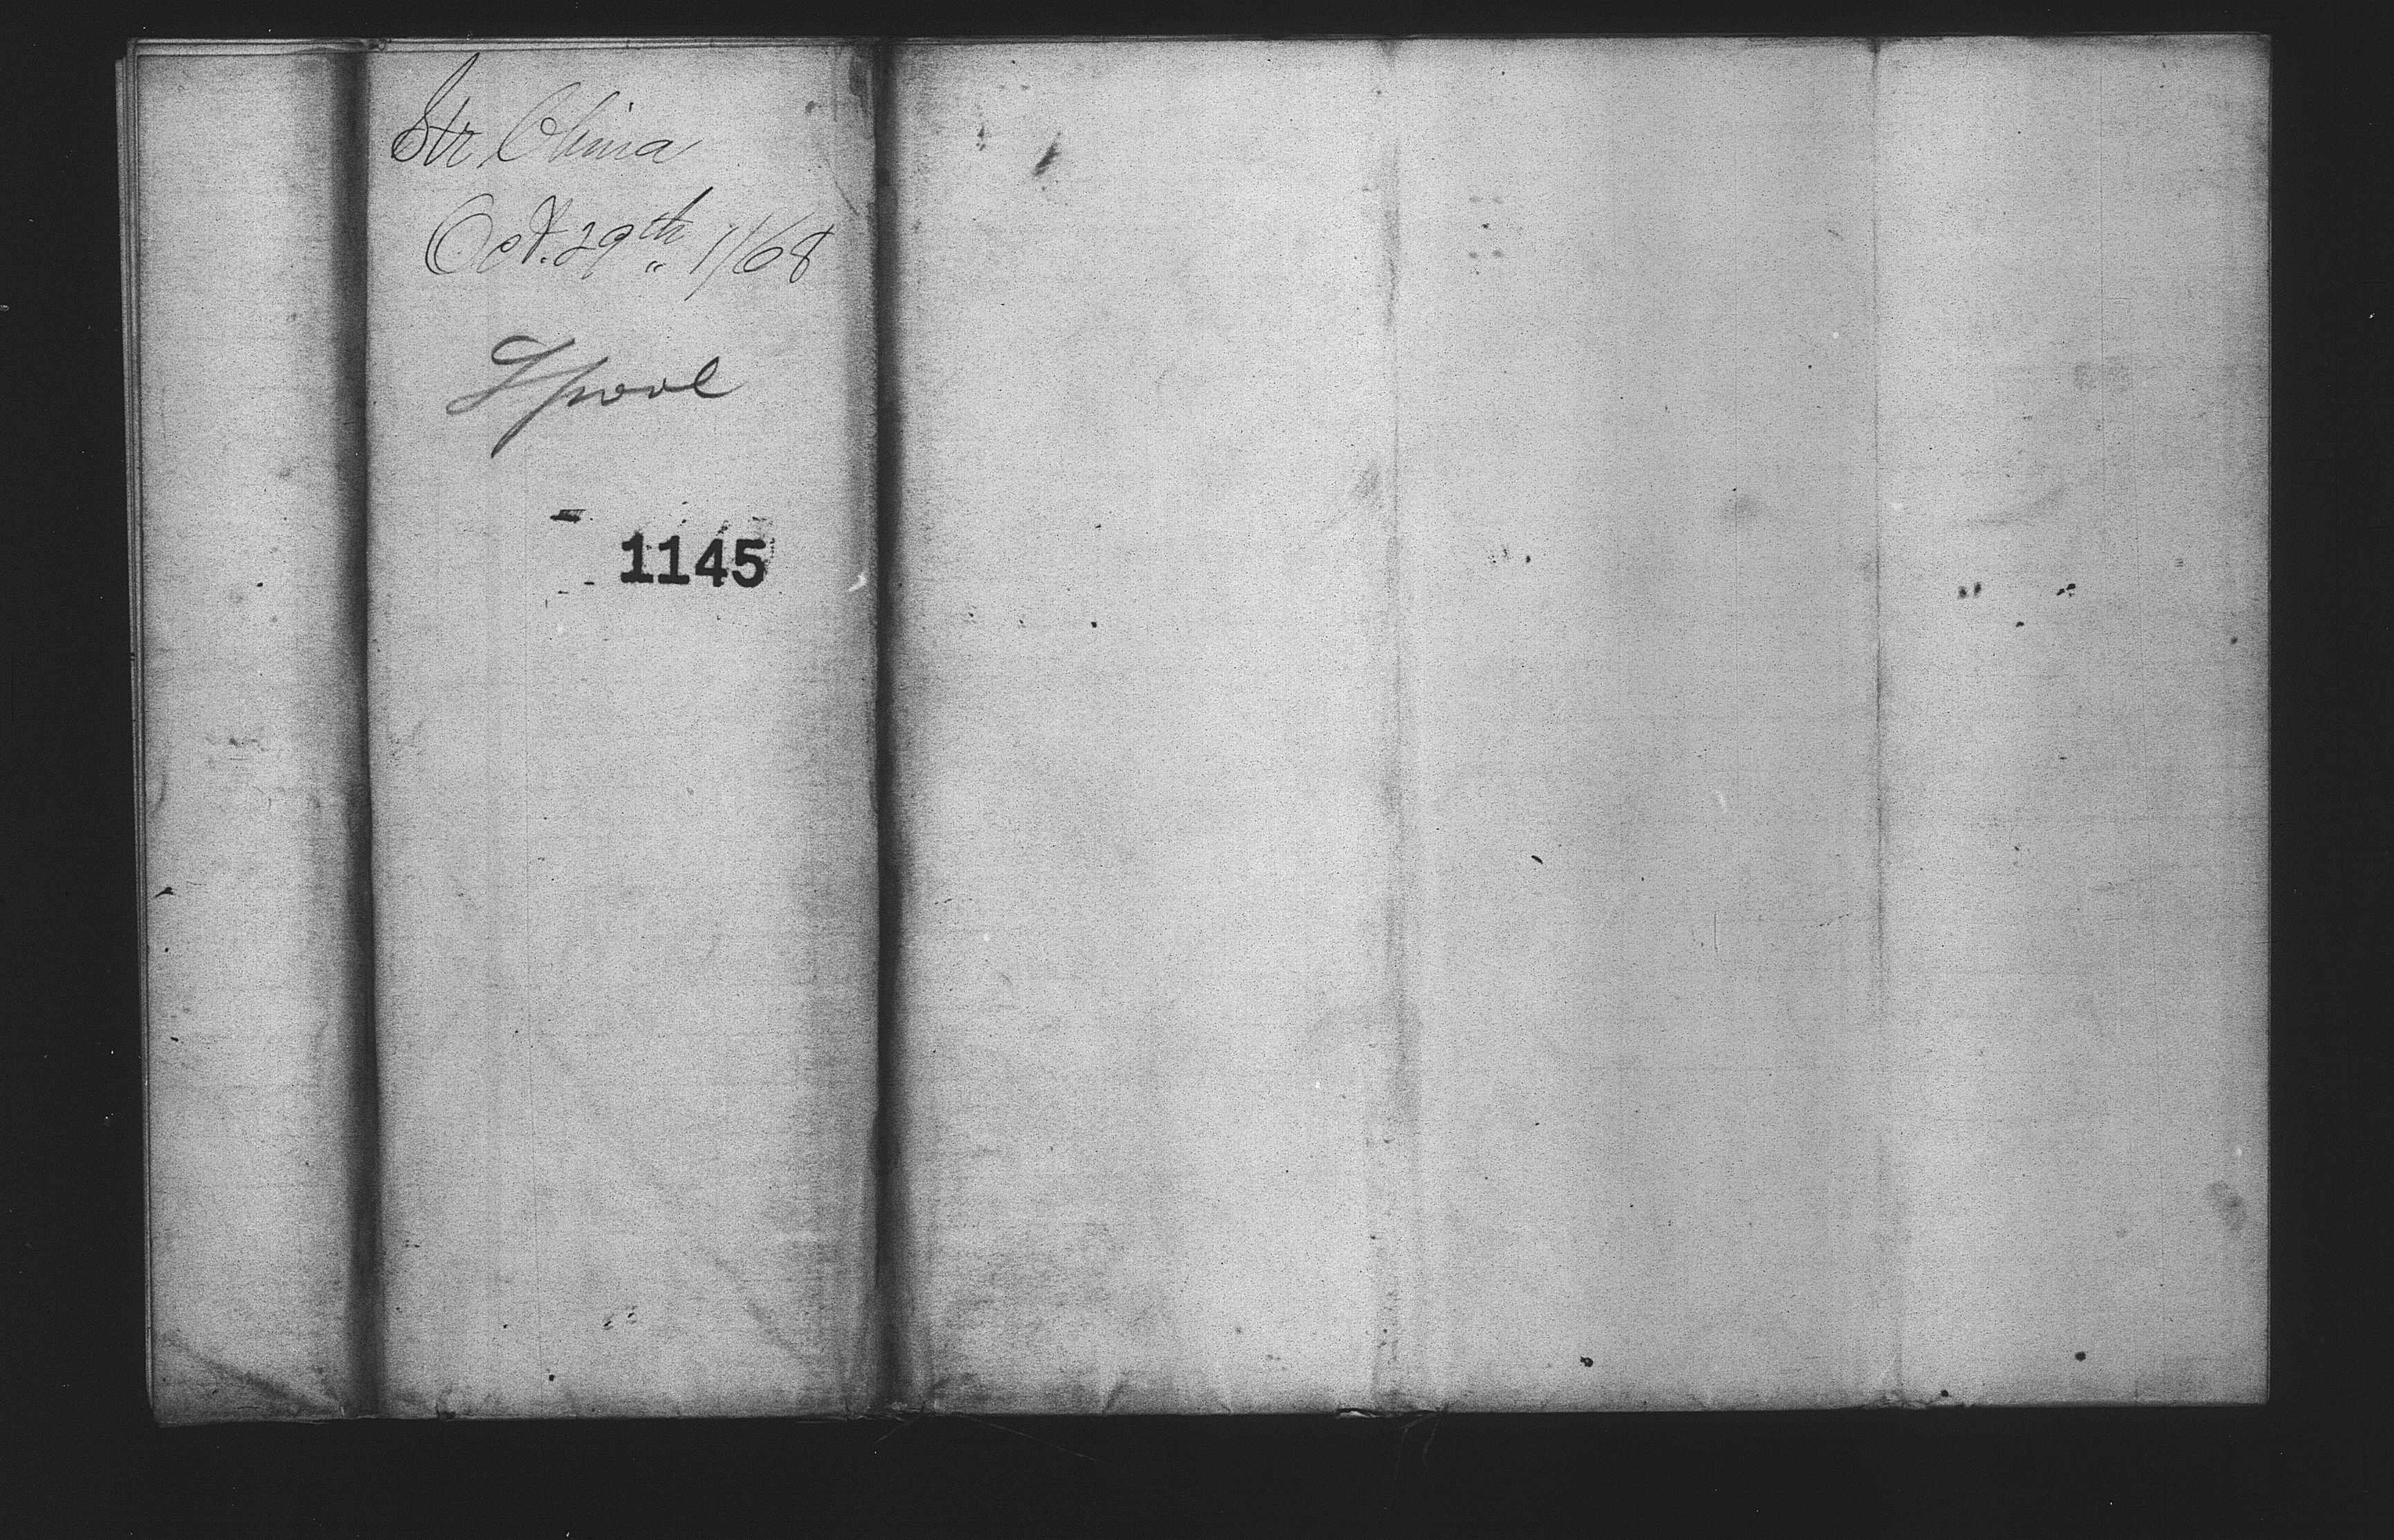 Str China
Oct. 29th 1/68
Lpool
1145